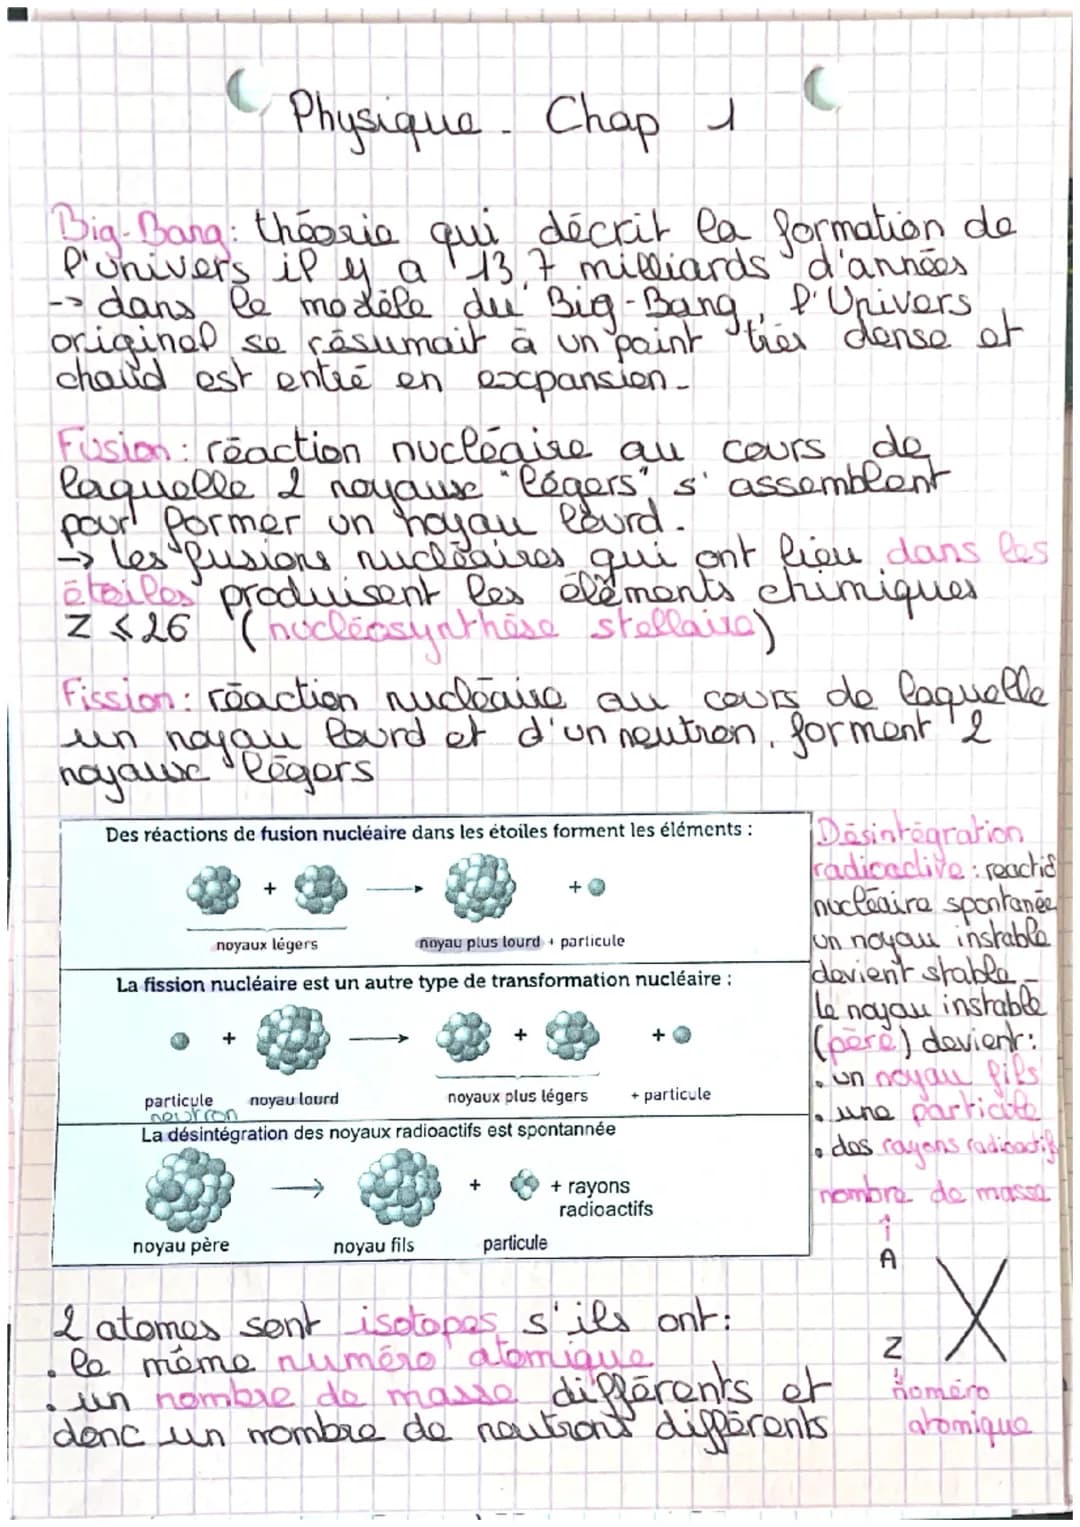 Physique - Chap 1
Big-Bang: théorie qui décrit la formation de
l'univers il y a 13,7 milliards d'années
-> dans le modèle du Big-Bang, l'Univers
original se résumait à un point très dense et
chaud est entré en expansion.
Fusion: réaction nucléaire au cours de
laquelle 2 noyaux "légers" s'assemblent
pour former un noyau lourd.
-> les fusions nucléaires qui ont lieu dans les
étoiles produisent les éléments chimiques
Z ⩽ 26 (nucléosynthèse stellaire)
Fission: réaction nucléaire au cours de laquelle
un noyau lourd et d'un neutron, forment 2
noyaux légers
Des réactions de fusion nucléaire dans les étoiles forment les éléments :
+ +
noyaux légers noyau plus lourd + particule
La fission nucléaire est un autre type de transformation nucléaire :
+ + +
particule noyau lourd noyaux plus légers + particule
neutron
La désintégration des noyaux radioactifs est spontannée
+ + rayons
radioactifs
noyau père noyau fils particule
Désintégration
radioactive: reactio
nucléaire spontanée
un noyau instable
devient stable -
le noyau instable
(père) devient:
. un noyau fils
. une particule
. des rayons radioactif
nombre de masse
↑
A
X
Z
↓
numéro
atomique
2 atomes sont isotopes s'ils ont:
. le même numéro atomique
. un nombre de masse différents et
donc un nombre de neutrons différents